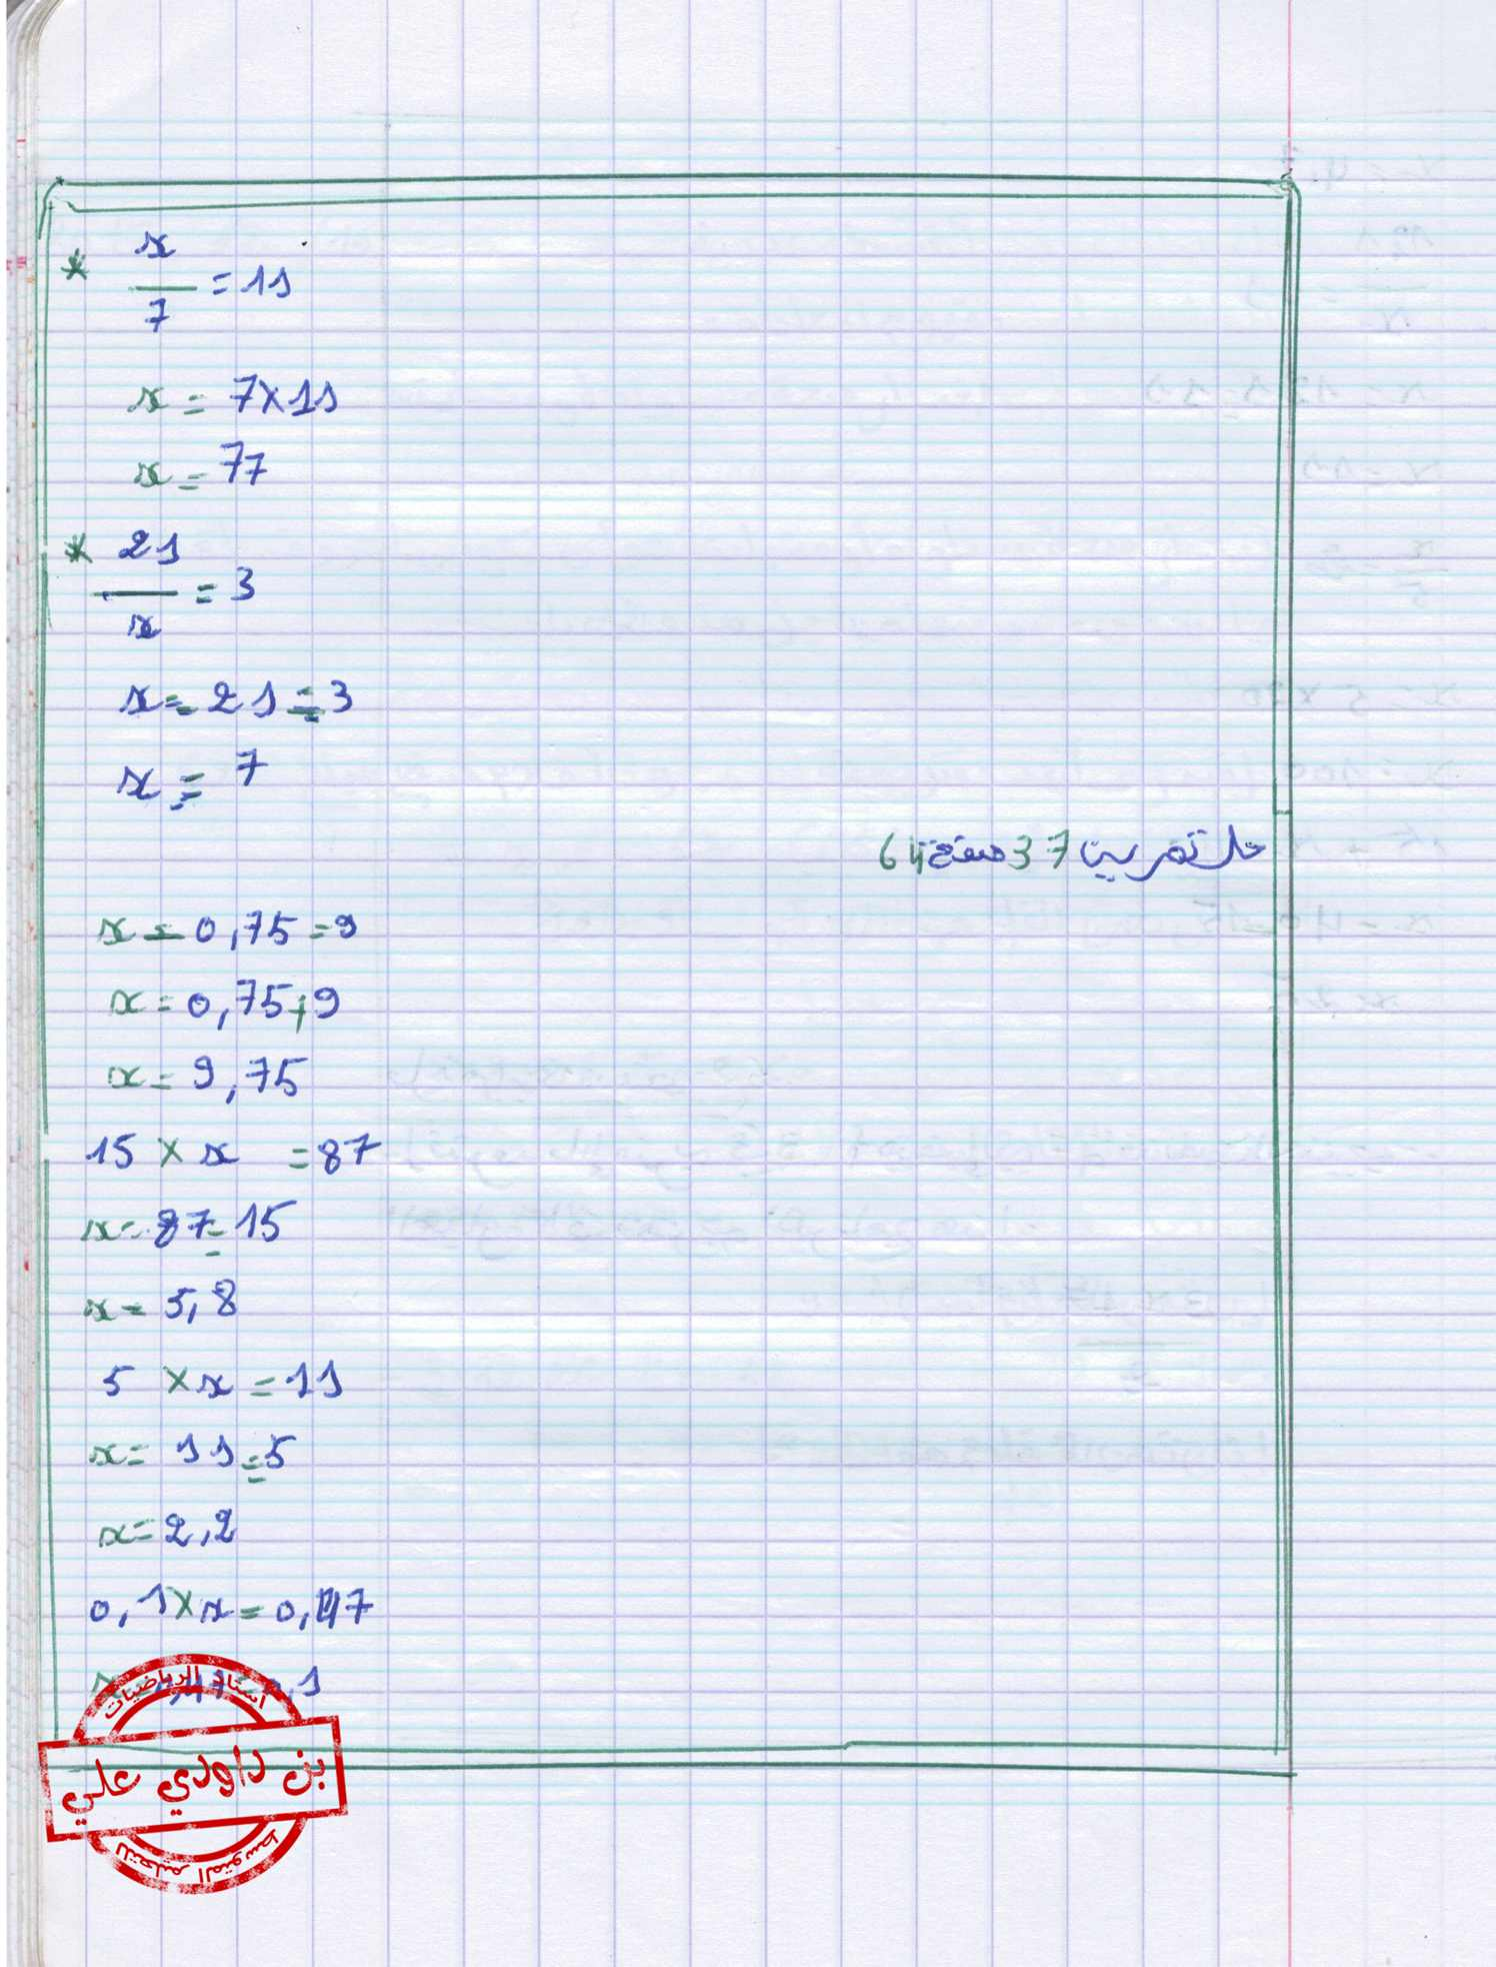 * x/7 = 11
x = 7×11
x = 77
* 21/x = 3
x = 21 ÷ 3
x = 7
حل تمرين 37 صفحة 64
x - 0,75 = 9
x = 0,75+9
x = 9,75
15 × x = 87
x = 87 ÷ 15
x = 5,8
5 × x = 11
x = 11 ÷ 5
x = 2,2
0,1 × x =
أستاذ الرياضيات
بن داودي علي
للتعليم المتوسط